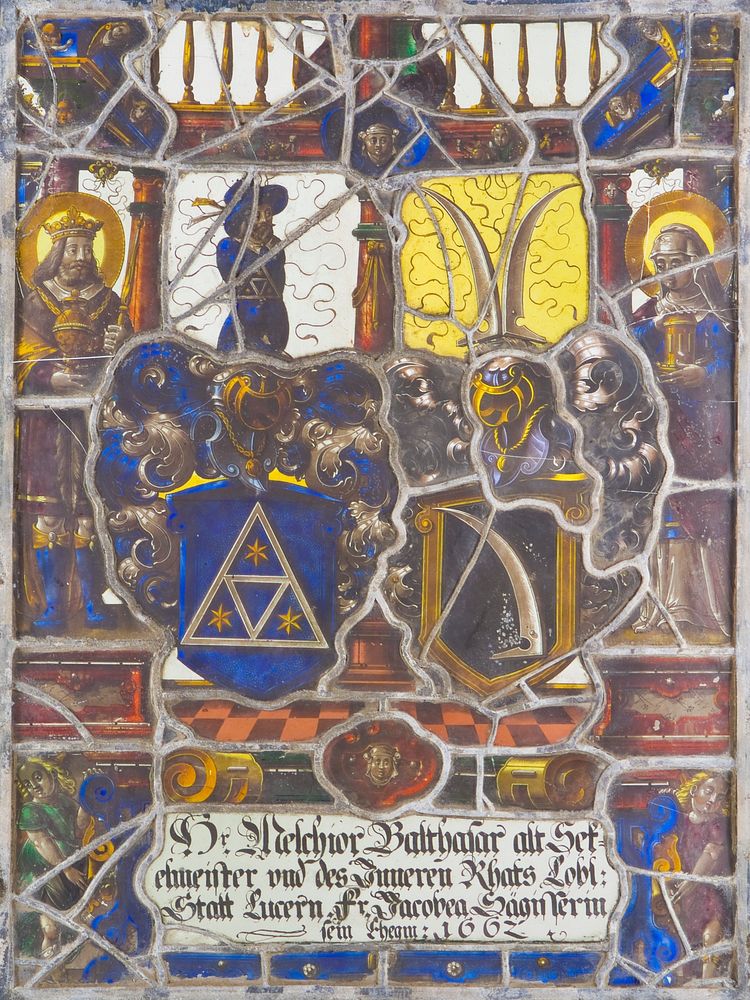 Hr Melchior Balthasar alt Sek-
elmeister vnd des Inneren Rhats Lobl:
Statt Lucern, Fr. Jacobea Sägisserin
sein Ehegm: 1662.